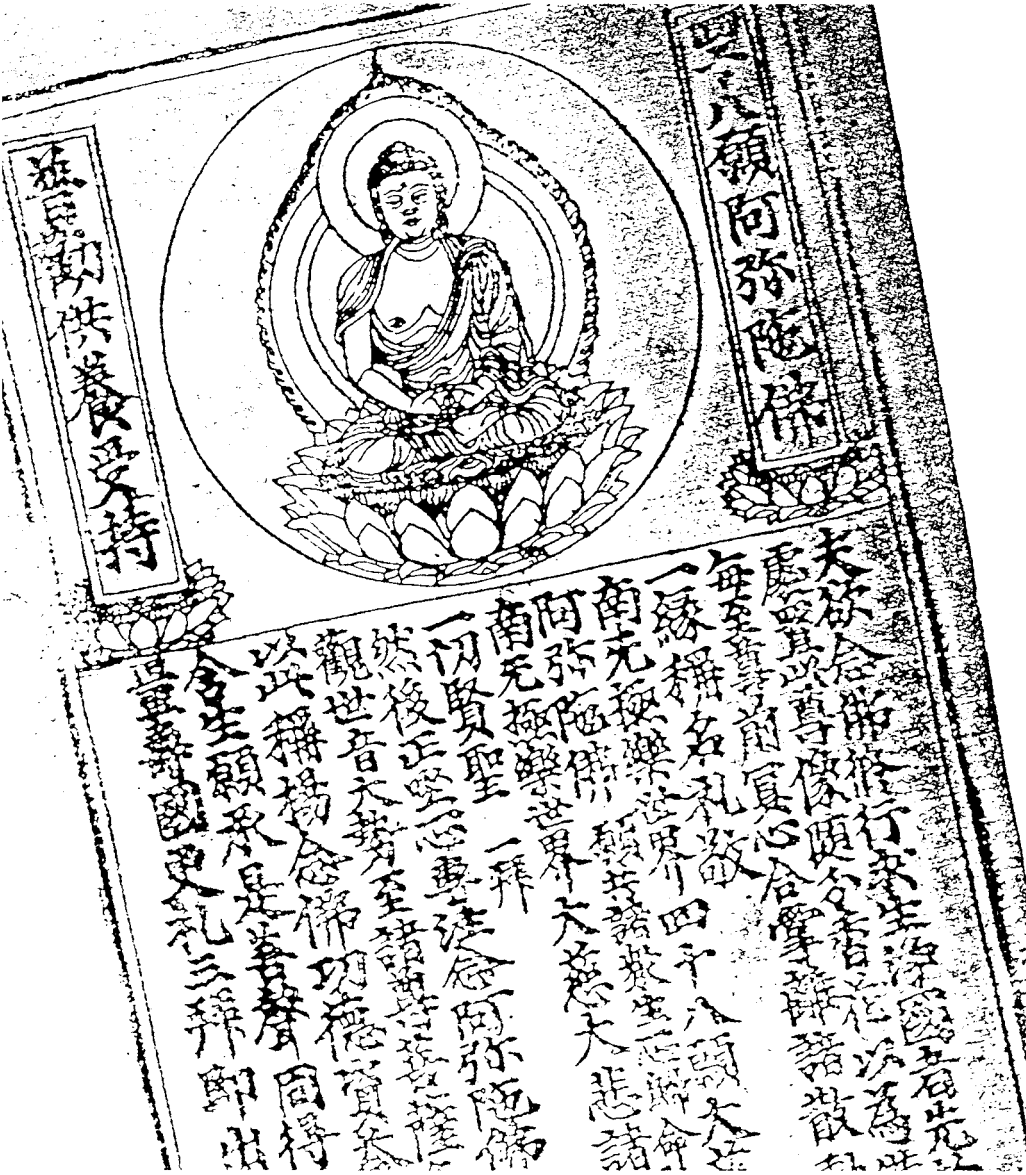 四十八願阿弥陀佛
普勸供養受持
夫欲念佛修行求生淨國者先
處置此尊像隨分香花以為
每至尊前冥心合掌離諸散動
一緣稱名礼敬
南无極樂世界四十八願大慈
阿弥陀佛 願共諸衆生一心歸命
南无極樂世界大慈大悲諸
一切賢聖 一拜
然後正坐一心專注念阿弥陀佛
觀世音大勢至諸尊菩薩
以此稱揚念佛功德資益
含生願承是善聲同得
量壽國更礼三拜即出